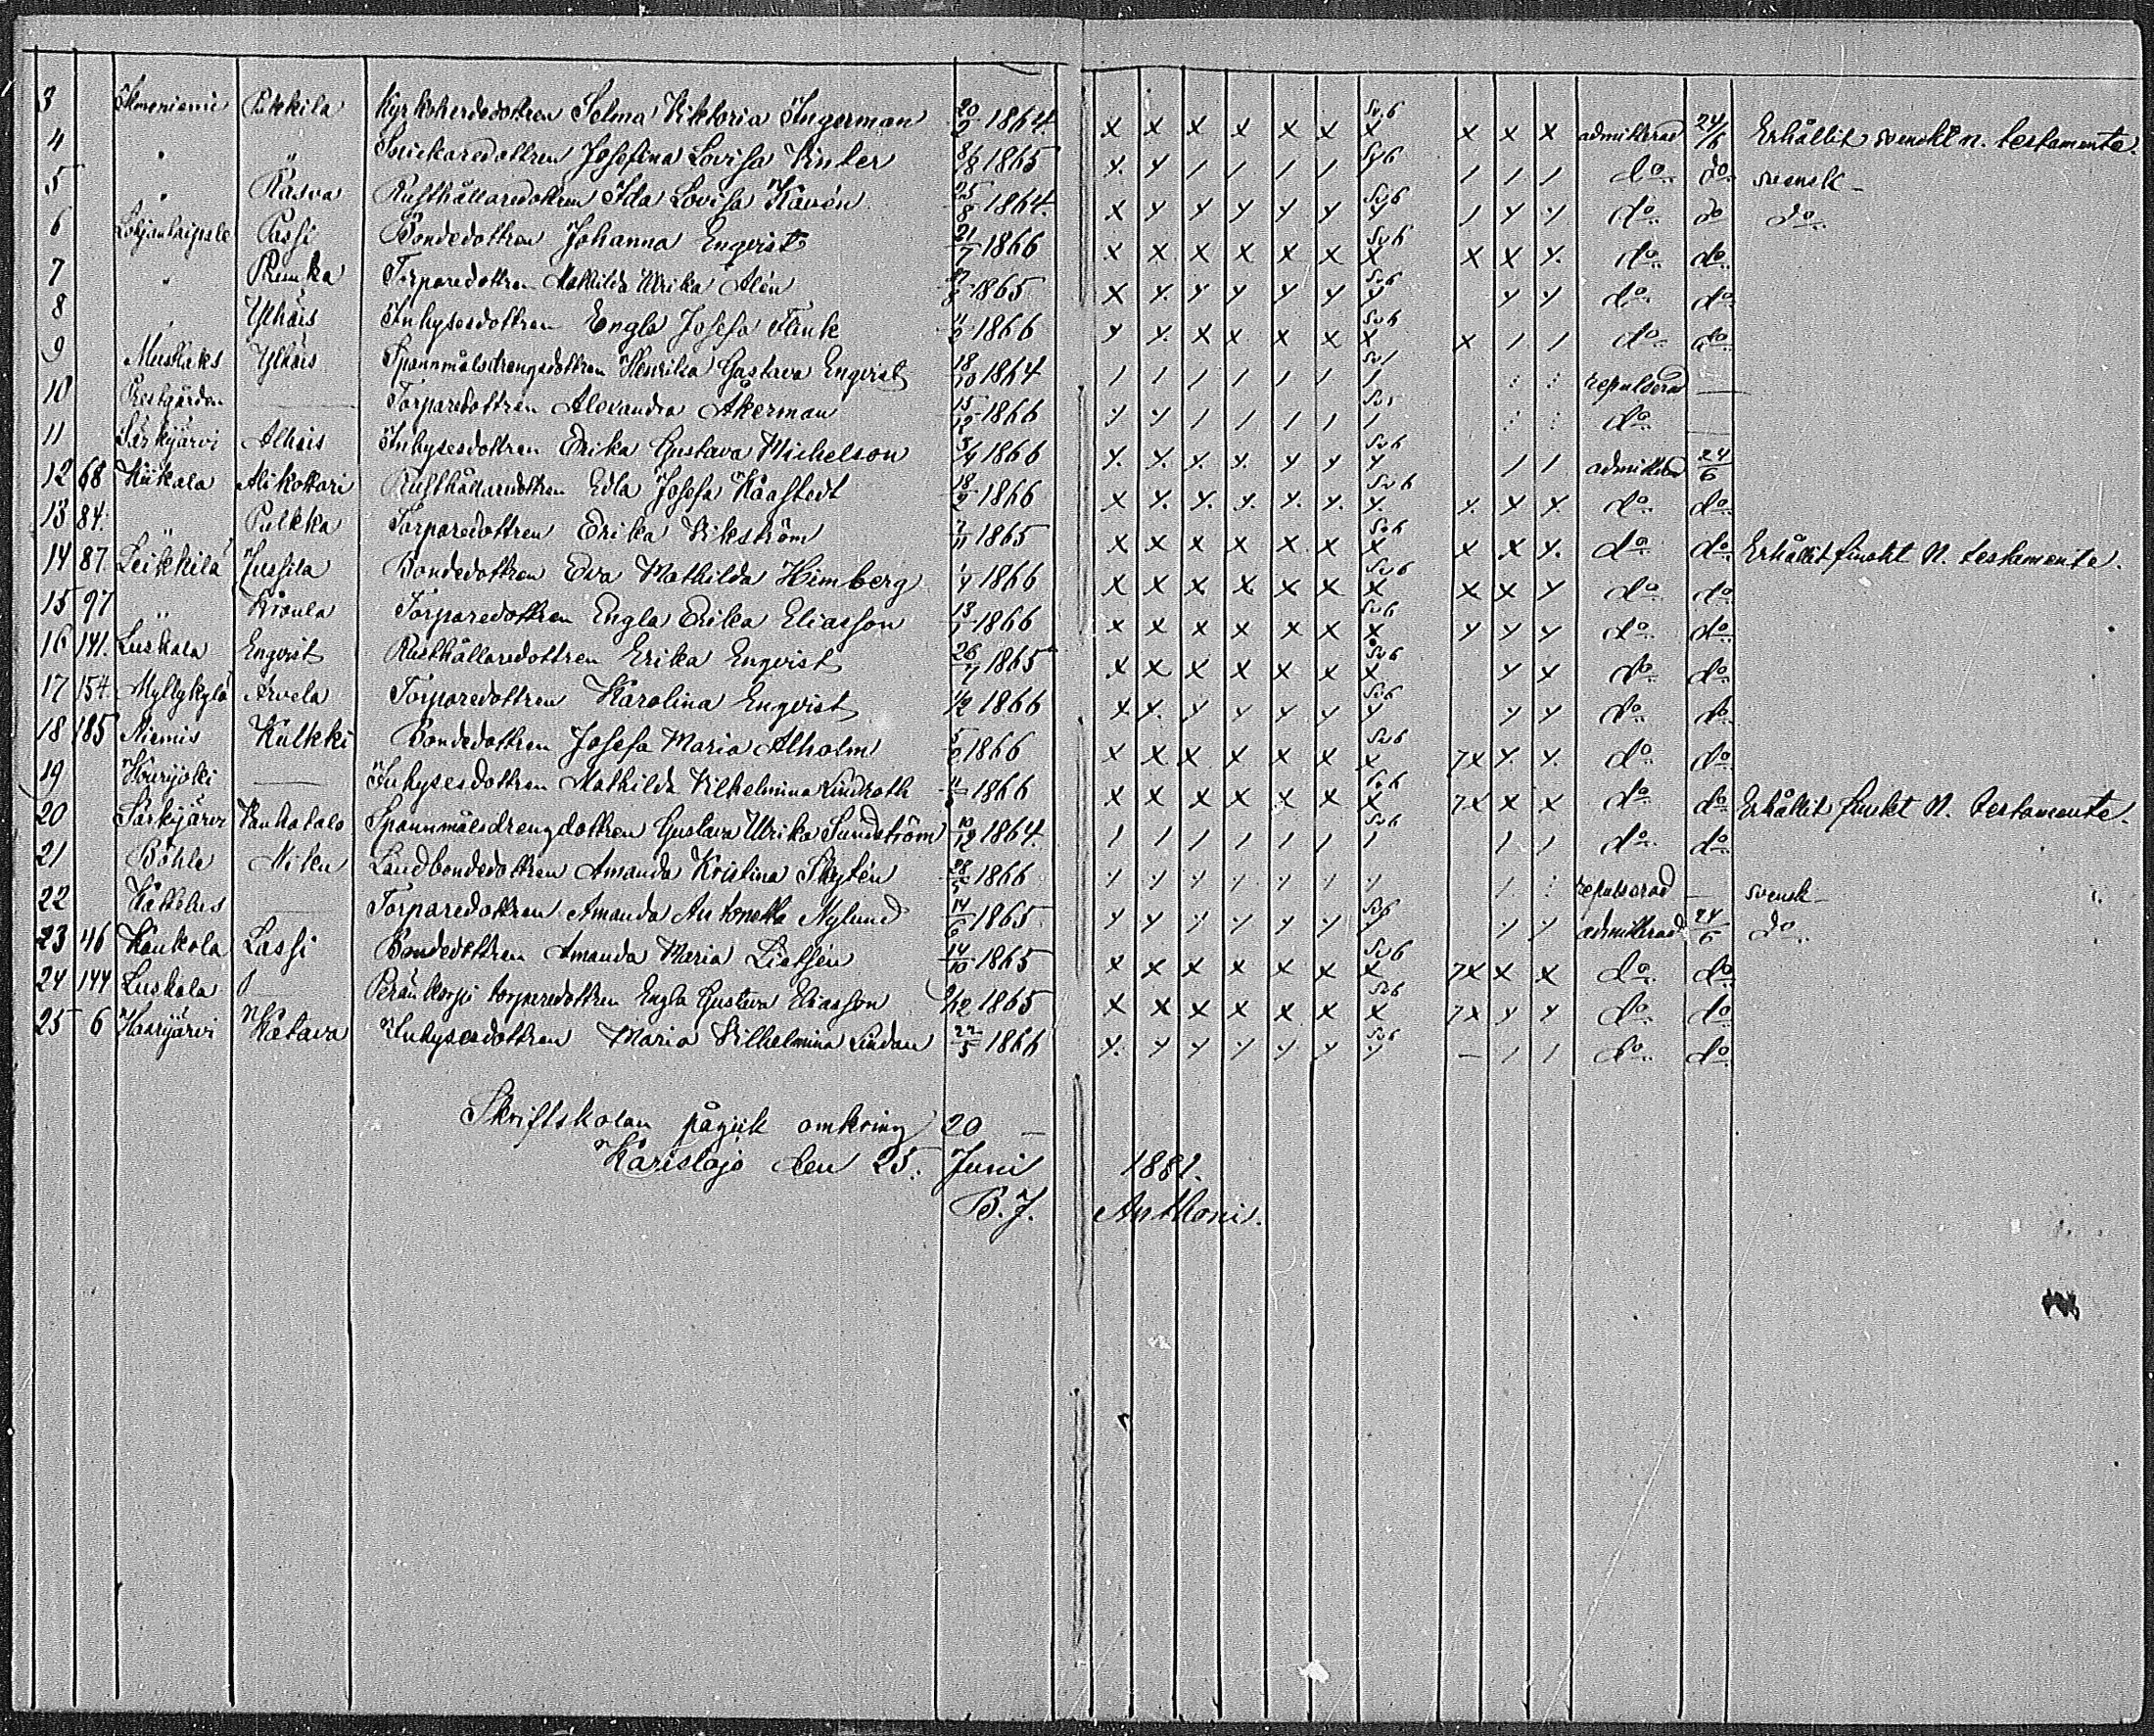 3 Pukkila Kyrkoherdedottren Selma Viktoria Ingerman 20/2 1864. x x x x x x Sv6 x x x x admitterad 24/6 Erhållit svenskt n. testamente.
4 " " Snickaredottren Josefina Lovisa 1865 y. y / / / / Sv6 y / / / do do svensk
5 " Rusthållaredottren Ida Lovisa Kavén 25/8 1864. x y y y y y Sv6 y / y y do do do
6 Lohjantaipale Passi Bondedottren Johanna Enqvist 21/7 1866 x x x x x x Sv6 x x x y. do do
7 " Torparedottren Mathilda Ulrika Alén 1865 x y. y y y y Sv6 y y y do do
8 " Ylhäis Inhysesdottren Engla Josefa Flink 1866 y y. x x x x Sv6 x x / / do do
9 Ylhäis Spannmålsdrengsdottren Henrika Gustava Enqvist 18/10 1864 / / / / / / / : : repulserad —
10 Prestgården — Torparedottren Alexandra Åkerman 15/12 1866 y y / / / / / : : do —
11 Särkijärvi Alhäis Inhysesdottren Erika Gustava Michelson 1866 y. y. y. y. y y Sv6 y / / admitterad 24/6
12 68 Hiikala Rusthållaredottren Edla Josefa 18/2 1866 x y. y. y. y. y. Sv6 y. y. y y. do do
13 84. " Pulkka Torparedottren Erika Vikström 1865 x x x x x x Sv6 x x x y. do do Erhållit finskt N. testamente.
14 87 Leikkilä Jussila Bondedottren Eva Mathilda Himberg 1866 x x x x x x Sv6 x x x y do do
15 97 " Torparedottren Engla Erika Eliasson 13/1 1866 x x x x x x Sv6 x y y y do do
16 141. Luskala Enqvist Rusthållaredottren Erika Enqvist 1865 x x x x x x Sv6 x y x do do
17 154. Myllykylä Arvela Torparedottren Karolina Enqvist 1866 x y. y y y y Sv6 y y y do do
18 185 Niemis Kulkki Bondedottren Josefa Maria Alholm 1866 x x x x x x Sv6 x 7x y. y. do do
19 — Inhysesdottren Mathilda Vilhelmina Lindroth 1866 x x x x x x x 7x x x do do Erhållit finskt N. testamente.
20 Särkijärvi Spannmålsdrengdottren Gustava Ulrika Sundström 10/12 1864. / / / / / / Sv6 / / / do do
21 Böhle Landbondedottren Amanda Kristina Skytén 28/5 1866 y y y y y y y / : repulserad — svensk
22 — Torparedottren Amanda Antonetta Nylund 14/6 1865 y y y y y y Sv6 y y y admitterad 24/6 do
23 46 Kaukola Lassi Bondedottren Amanda Maria 14/10 1865 x x x x x x Sv6 x 7x x x do do
24 144 Luskala torparedottren Engla Gustava Eliasson 1865 x x x x x x Sv6 x 7x y y do do
25 6 Haarijärvi Inhysesdottren Maria Vilhelmina Lindau 22/5 1866 y. y y y y y Sv6 y — / / do do
Skriftskolan pågick omkring 20 —
Karislojo den 25. Juni 1881.
B. J. Anthoni.